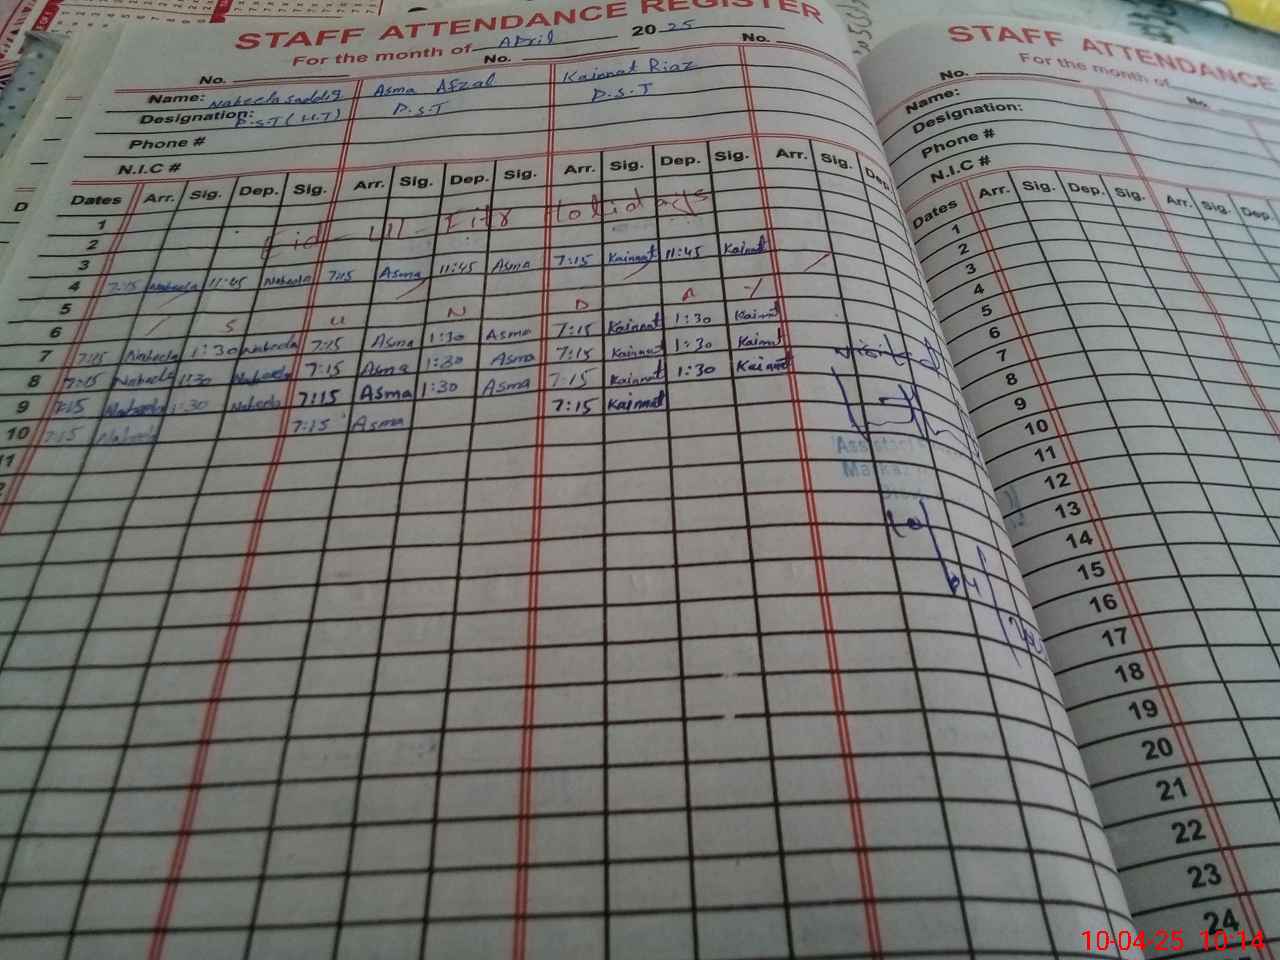 STAFF ATTENDANCE REGISTER
For the month of April 2025
No. No. No.
Name: Nabeela Saddiq Asma Afzal Kainnat Riaz
Designation: P.S.T (H.T) P.S.T P.S.T
Phone #
N.I.C #
Dates Arr. Sig. Dep. Sig. Arr. Sig. Dep. Sig. Arr. Sig. Dep. Sig. Arr. Sig. Dep.
1
2 Eid-Ul-Fitr Holidays
3
4 7:15 Nabeela 11:45 Nabeela 7:15 Asma 11:45 Asma 7:15 Kainnat 11:45 Kainnat
5
6 S U N D A Y
7 7:15 Nabeela 1:30 Nabeela 7:15 Asma 1:30 Asma 7:15 Kainnat 1:30 Kainnat
8 7:15 Nabeela 1:30 Nabeela 7:15 Asma 1:30 Asma 7:15 Kainnat 1:30 Kainnat
9 7:15 Nabeela 1:30 Nabeela 7:15 Asma 1:30 Asma 7:15 Kainnat 1:30 Kainnat
10 7:15 Nabeela 7:15 Asma 7:15 Kainnat
11
Visited
Assistant
Markaz
STAFF ATTENDANCE
For the month of
No. No.
Name:
Designation:
Phone #
N.I.C #
Dates Arr. Sig. Dep. Sig. Arr. Sig. Dep.
1
2
3
4
5
6
7
8
9
10
11
12
13
14
15
16
17
18
19
20
21
22
23
24
10-04-25 10:14